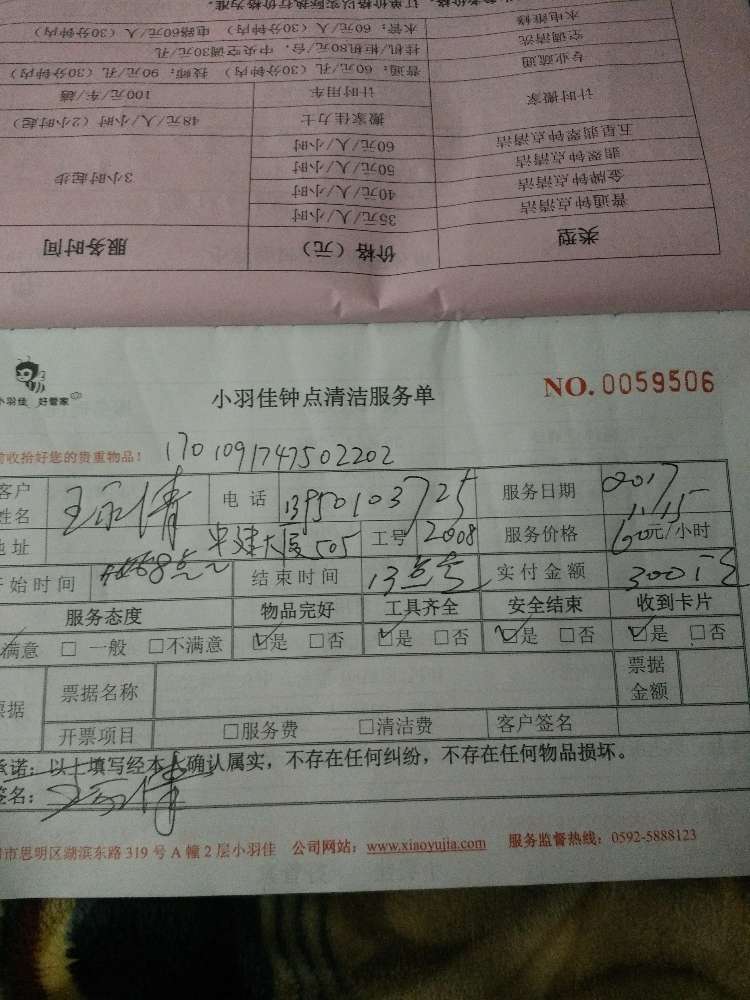 订单价格以实际执行价格为准。
水电维修 水管：60元/人（30分钟内） 电路60元/人（30分钟内）
空调清洗 挂机/柜机80元/台，中央空调30元/孔
专业疏通 普通：60元/孔（30分钟内） 技师：90元/孔（30分钟内）
计时搬家 计时用车 100元/车/趟
搬家佳力士 48元/人/小时（2小时起）
五星翡翠钟点清洁 60元/人/小时
翡翠钟点清洁 50元/人/小时 3小时起步
金牌钟点清洁 40元/人/小时
普通钟点清洁 35元/人/小时
类型 价格（元） 服务时间
小羽佳 好管家
小羽佳钟点清洁服务单 NO.0059506
收拾好您的贵重物品！ 1701091747502202
客户姓名 电话 13950103725 服务日期 2017 11/15
地址 大厦505 工号 2008 服务价格 60元/小时
开始时间 8点 结束时间 13点 实付金额 300元
服务态度 物品完好 工具齐全 安全结束 收到卡片
满意 □ 一般 □不满意 是 □否 是 □否 是 □否 是 □否
票据 票据名称 票据金额
开票项目 □服务费 □清洁费 客户签名
承诺：以上填写经本人确认属实，不存在任何纠纷，不存在任何物品损坏。
签名：
市思明区湖滨东路319号A幢2层小羽佳 公司网站：www.xiaoyujia.com 服务监督热线：0592-5888123